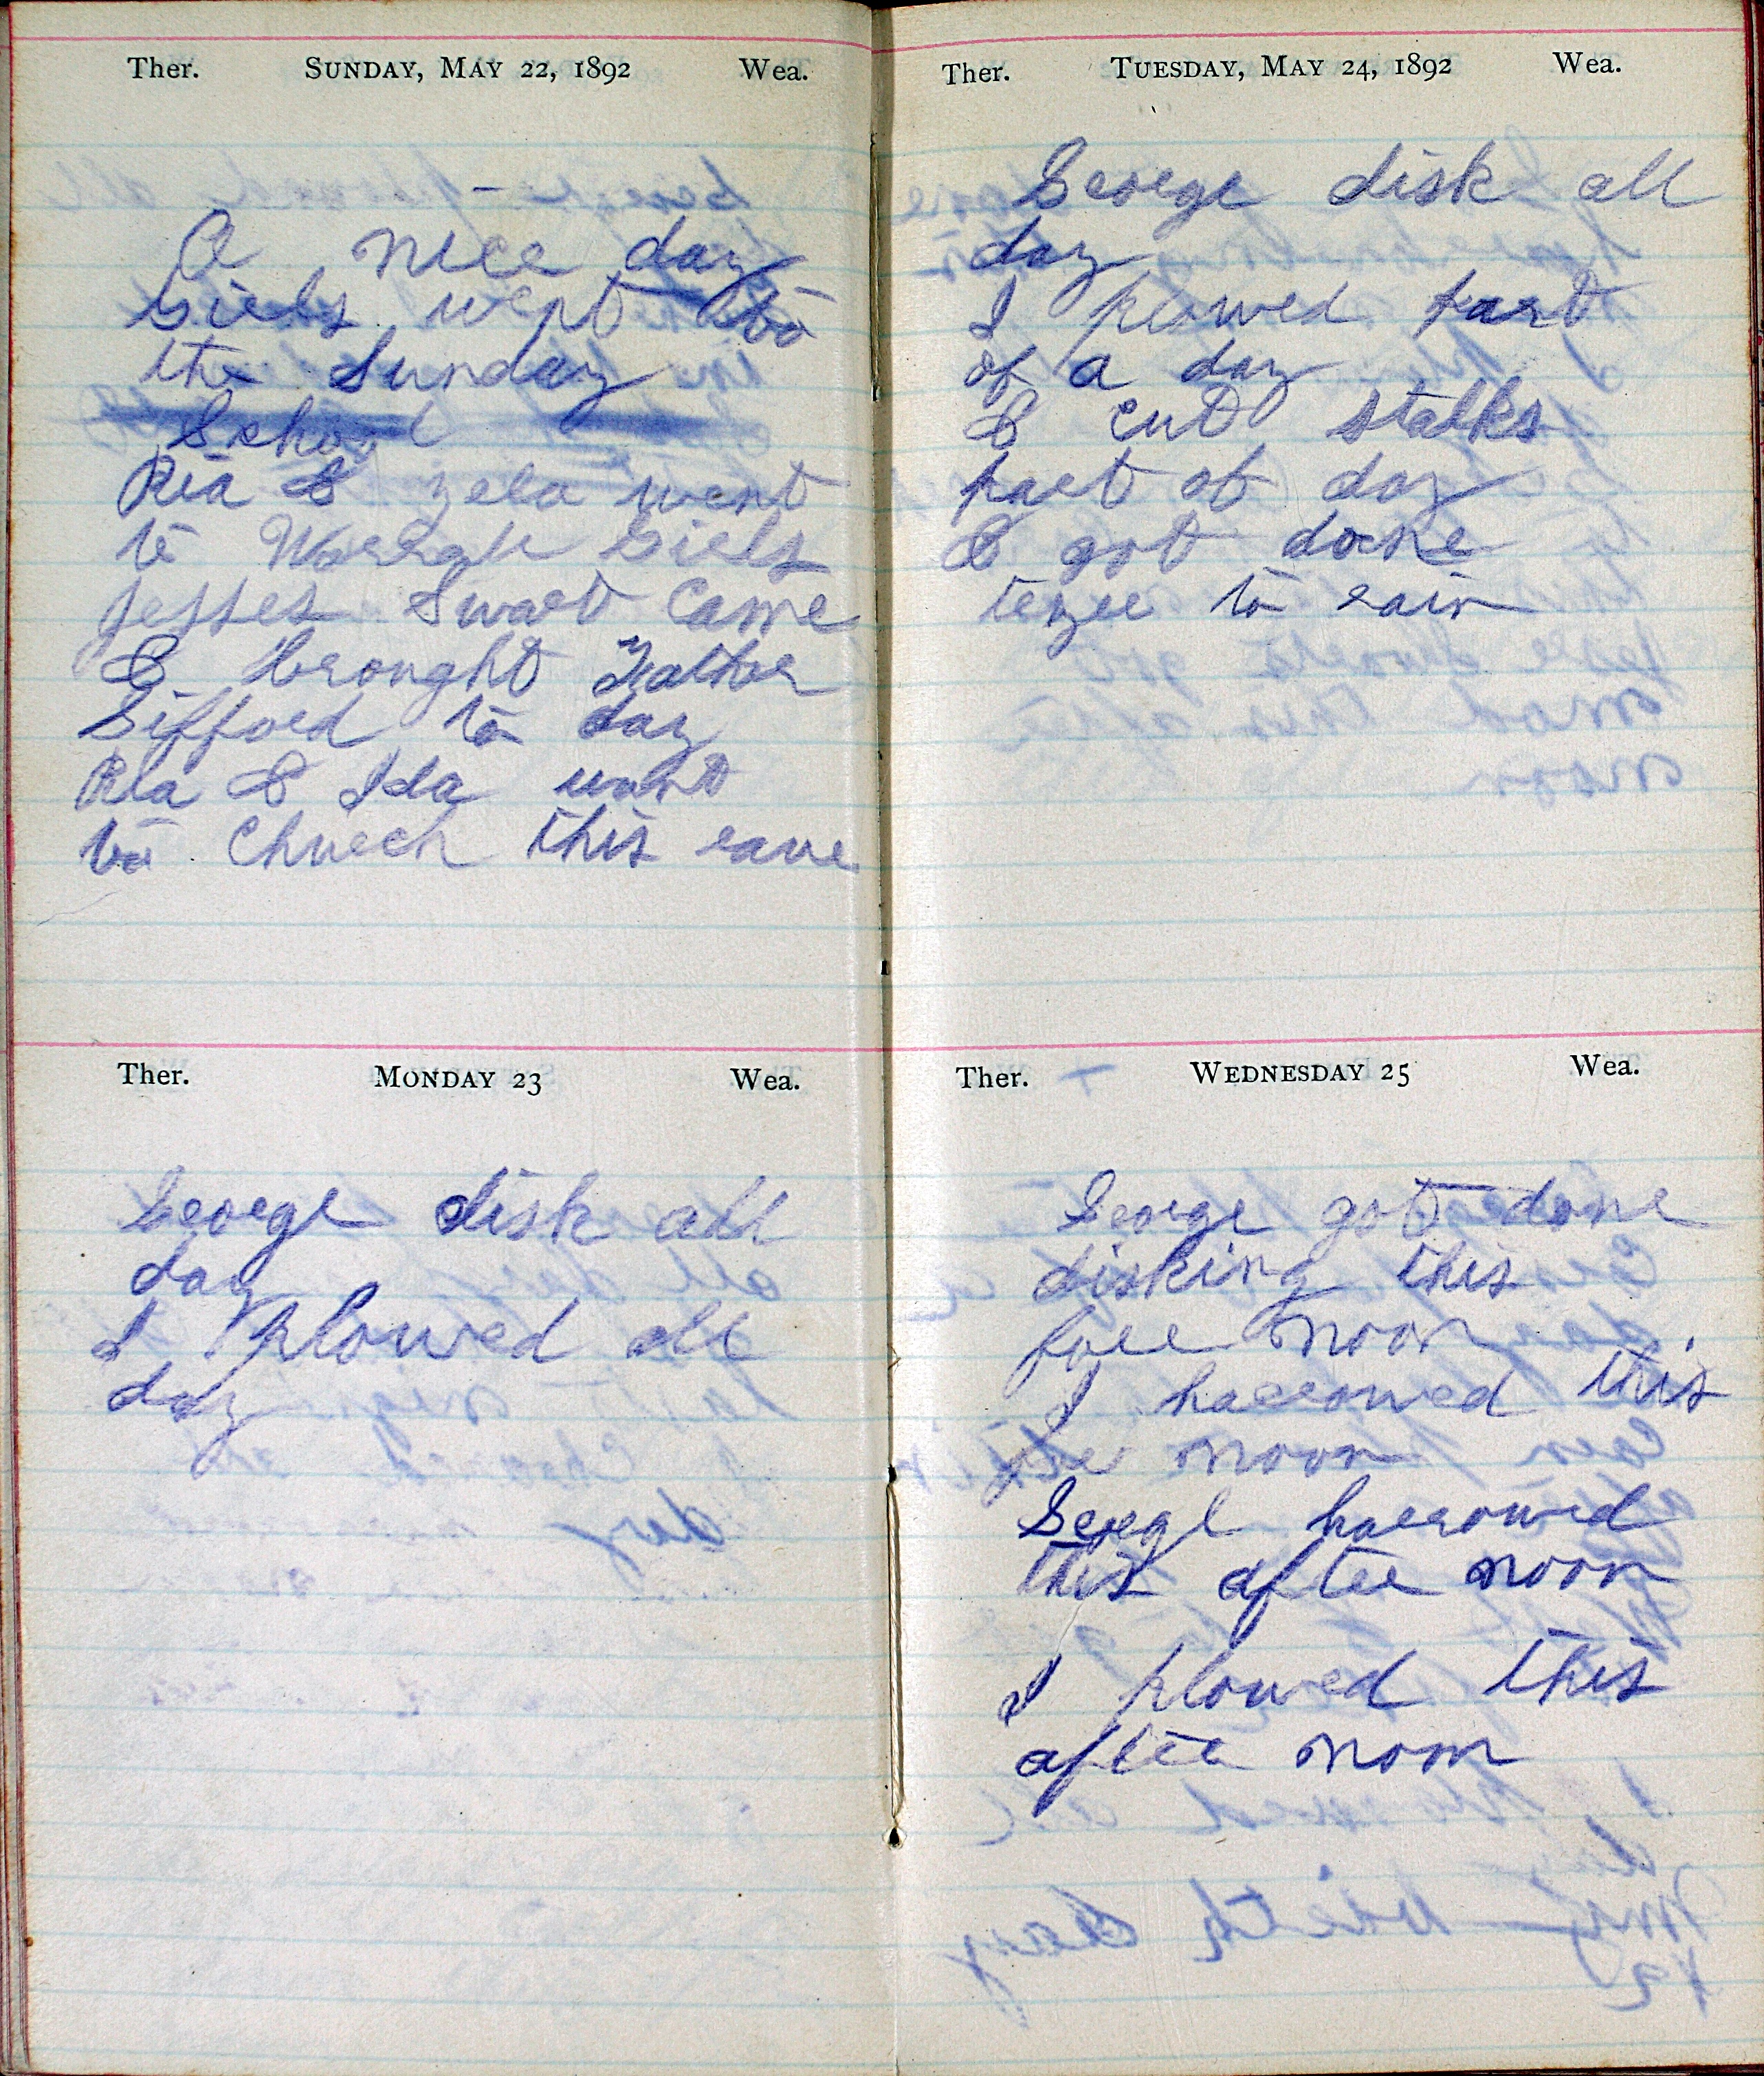 Ther. SUNDAY, MAY 22, 1892 Wea.
A nice day
Girls went to
the Sunday
School
Ria & zela went
to Girls
Swart Came
& brought Father
Gifford to day
Ria & Ida went
to Church this eave
Ther. MONDAY 23 Wea.
George disk all
day
I Plowed all
day
Ther. TUESDAY, MAY 24, 1892 Wea.
George disk all
day
I plowed part
of a day
& cut stalks
part of day
& got done
to rain
Ther. WEDNESDAY 25 Wea.
George got done
disking this
fore noon
I harrowed this
noon
George harrowed
this after noon
I plowed this
after noon